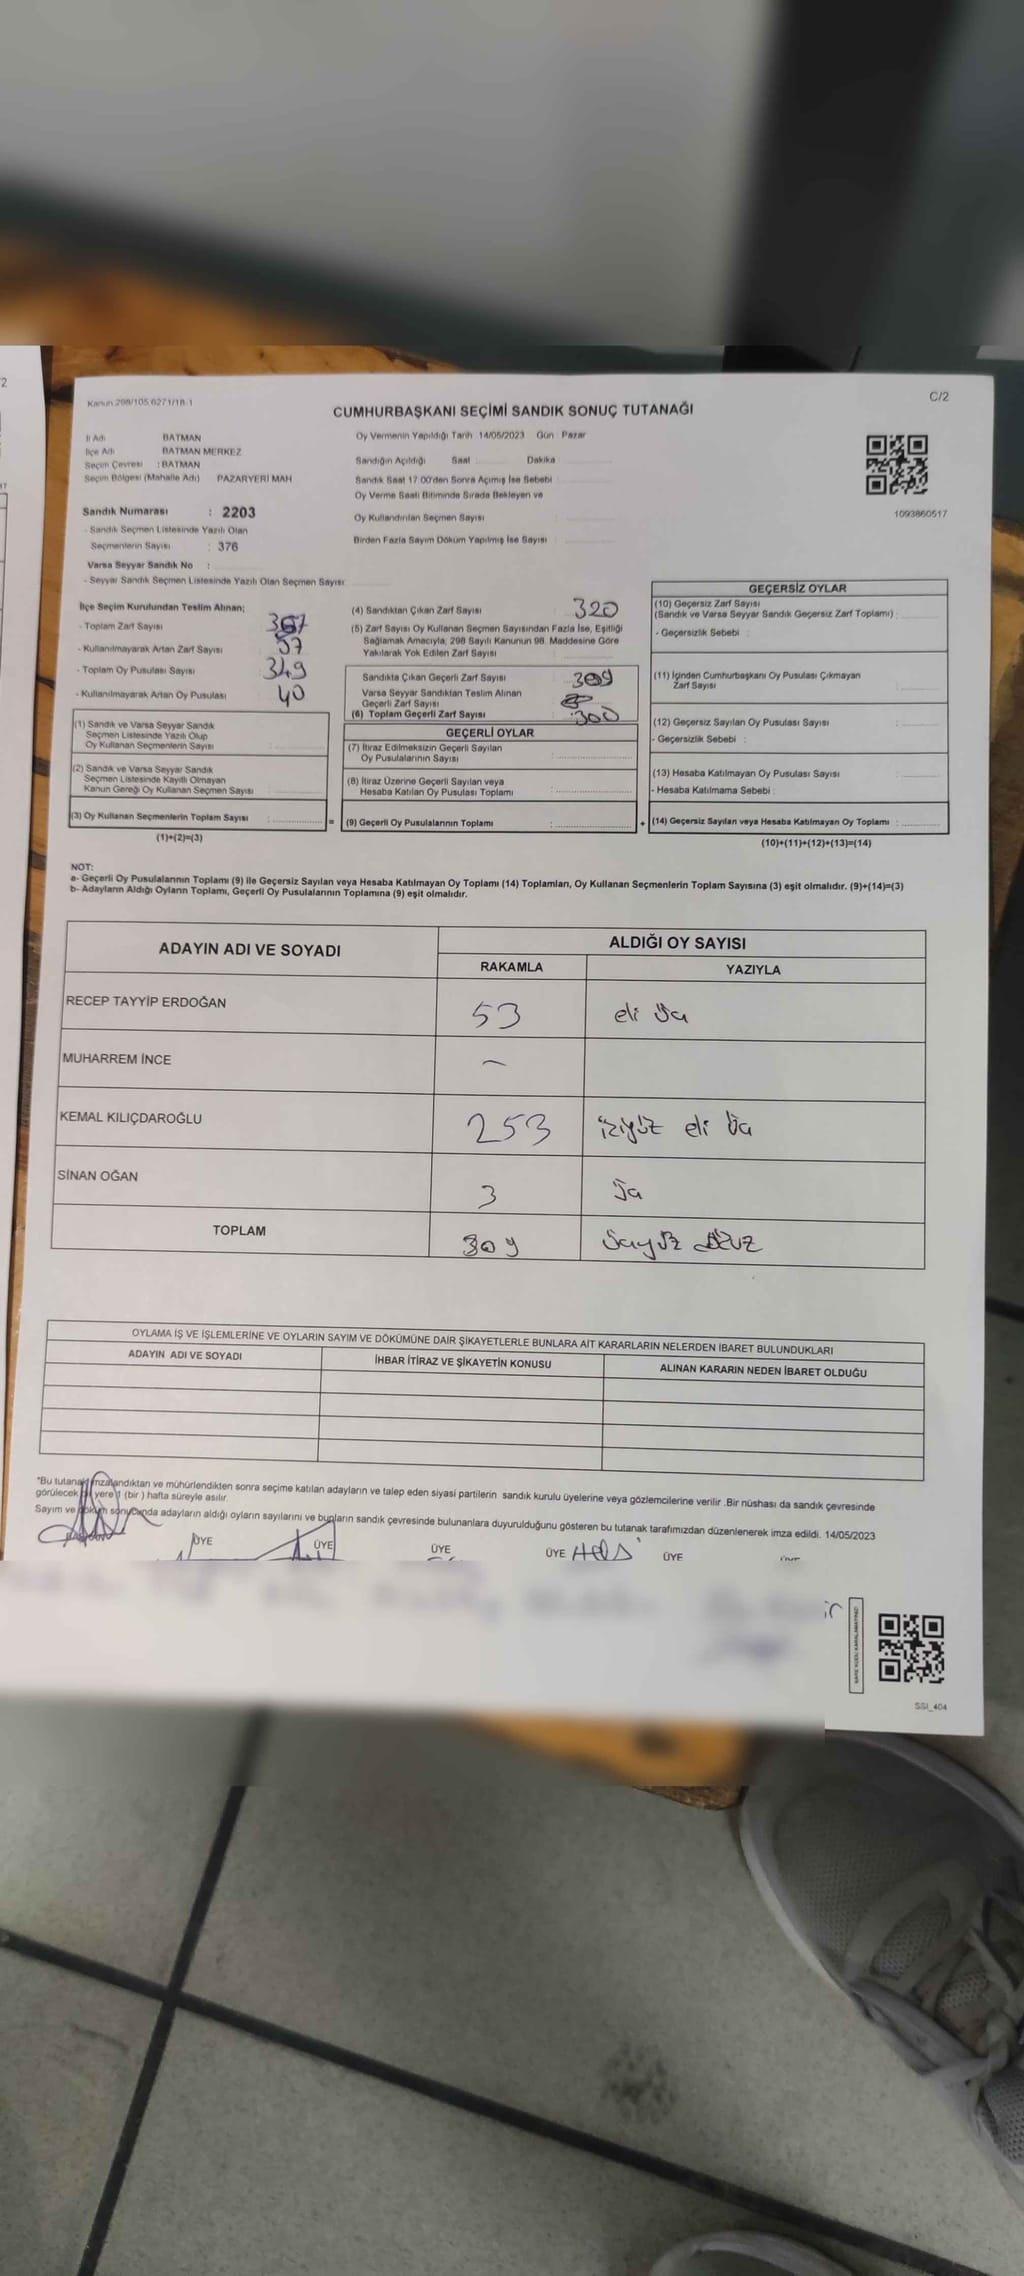 Kanun 298/105,6271/18-1
C/2
CUMHURBAŞKANI SEÇİMİ SANDIK SONUÇ TUTANAĞI
İl Adı BATMAN
İlçe Adı BATMAN MERKEZ
Seçim Çevresi : BATMAN
Seçim Bölgesi (Mahalle Adı) PAZARYERİ MAH
Sandık Numarası : 2203
- Sandık Seçmen Listesinde Yazılı Olan
Seçmenlerin Sayısı : 376
Varsa Seyyar Sandık No :
- Seyyar Sandık Seçmen Listesinde Yazılı Olan Seçmen Sayısı
Oy Vermenin Yapıldığı Tarih 14/05/2023 Gün : Pazar
Sandığın Açıldığı Saat Dakika
Sandık Saat 17.00'den Sonra Açımış İse Sebebi
Oy Verme Saati Bitiminde Sırada Bekleyen ve
Oy Kullandırılan Seçmen Sayısı
Birden Fazla Sayım Döküm Yapılmış İse Sayısı
1093860517
İlçe Seçim Kurulundan Teslim Alınan;
- Toplam Zarf Sayısı 367
- Kullanılmayarak Artan Zarf Sayısı 57
- Toplam Oy Pusulası Sayısı 349
- Kullanılmayarak Artan Oy Pusulası 40
(1) Sandık ve Varsa Seyyar Sandık
Seçmen Listesinde Yazılı Olup
Oy Kullanan Seçmenlerin Sayısı :
(2) Sandık ve Varsa Seyyar Sandık
Seçmen Listesinde Kayıtlı Olmayan
Kanun Gereği Oy Kullanan Seçmen Sayısı :
(3) Oy Kullanan Seçmenlerin Toplam Sayısı : =
(1)+(2)=(3)
(4) Sandıktan Çıkan Zarf Sayısı : 320
(5) Zarf Sayısı Oy Kullanan Seçmen Sayısından Fazla İse, Eşitliği
Sağlamak Amacıyla, 298 Sayılı Kanunun 98. Maddesine Göre
Yakılarak Yok Edilen Zarf Sayısı
Sandıkta Çıkan Geçerli Zarf Sayısı 309
Varsa Seyyar Sandıktan Teslim Alınan
Geçerli Zarf Sayısı
(6) Toplam Geçerli Zarf Sayısı 300
GEÇERLİ OYLAR
(7) İtiraz Edilmeksizin Geçerli Sayılan
Oy Pusulalarının Sayısı :
(8) İtiraz Üzerine Geçerli Sayılan veya
Hesaba Katılan Oy Pusulası Toplamı :
(9) Geçerli Oy Pusulalarının Toplamı : +
GEÇERSİZ OYLAR
(10) Geçersiz Zarf Sayısı
(Sandık ve Varsa Seyyar Sandık Geçersiz Zarf Toplamı) :
- Geçersizlik Sebebi :
(11) İçinden Cumhurbaşkanı Oy Pusulası Çıkmayan
Zarf Sayısı :
(12) Geçersiz Sayılan Oy Pusulası Sayısı :
- Geçersizlik Sebebi :
(13) Hesaba Katılmayan Oy Pusulası Sayısı :
- Hesaba Katılmama Sebebi :
(14) Geçersiz Sayılan veya Hesaba Katılmayan Oy Toplamı :
(10)+(11)+(12)+(13)=(14)
NOT:
a- Geçerli Oy Pusulalarının Toplamı (9) ile Geçersiz Sayılan veya Hesaba Katılmayan Oy Toplamı (14) Toplamları, Oy Kullanan Seçmenlerin Toplam Sayısına (3) eşit olmalıdır. (9)+(14)=(3)
b- Adayların Aldığı Oyların Toplamı, Geçerli Oy Pusulalarının Toplamına (9) eşit olmalıdır.
ADAYIN ADI VE SOYADI
ALDIĞI OY SAYISI
RAKAMLA YAZIYLA
RECEP TAYYİP ERDOĞAN 53 eli üç
MUHARREM İNCE -
KEMAL KILIÇDAROĞLU 253 ikiyüz eli üç
SİNAN OĞAN 3 üç
TOPLAM 309
OYLAMA İŞ VE İŞLEMLERİNE VE OYLARIN SAYIM VE DÖKÜMÜNE DAİR ŞİKAYETLERLE BUNLARA AİT KARARLARIN NELERDEN İBARET BULUNDUKLARI
ADAYIN ADI VE SOYADI İHBAR İTİRAZ VE ŞİKAYETİN KONUSU ALINAN KARARIN NEDEN İBARET OLDUĞU
*Bu tutanak imzalandıktan ve mühürlendikten sonra seçime katılan adayların ve talep eden siyasi partilerin sandık kurulu üyelerine veya gözlemcilerine verilir .Bir nüshası da sandık çevresinde
görülecek bir yere 1 (bir ) hafta süreyle asılır.
Sayım ve döküm sonucunda adayların aldığı oyların sayılarını ve bunların sandık çevresinde bulunanlara duyurulduğunu gösteren bu tutanak tarafımızdan düzenlenerek imza edildi. 14/05/2023
ÜYE ÜYE ÜYE ÜYE ÜYE
SSI_404